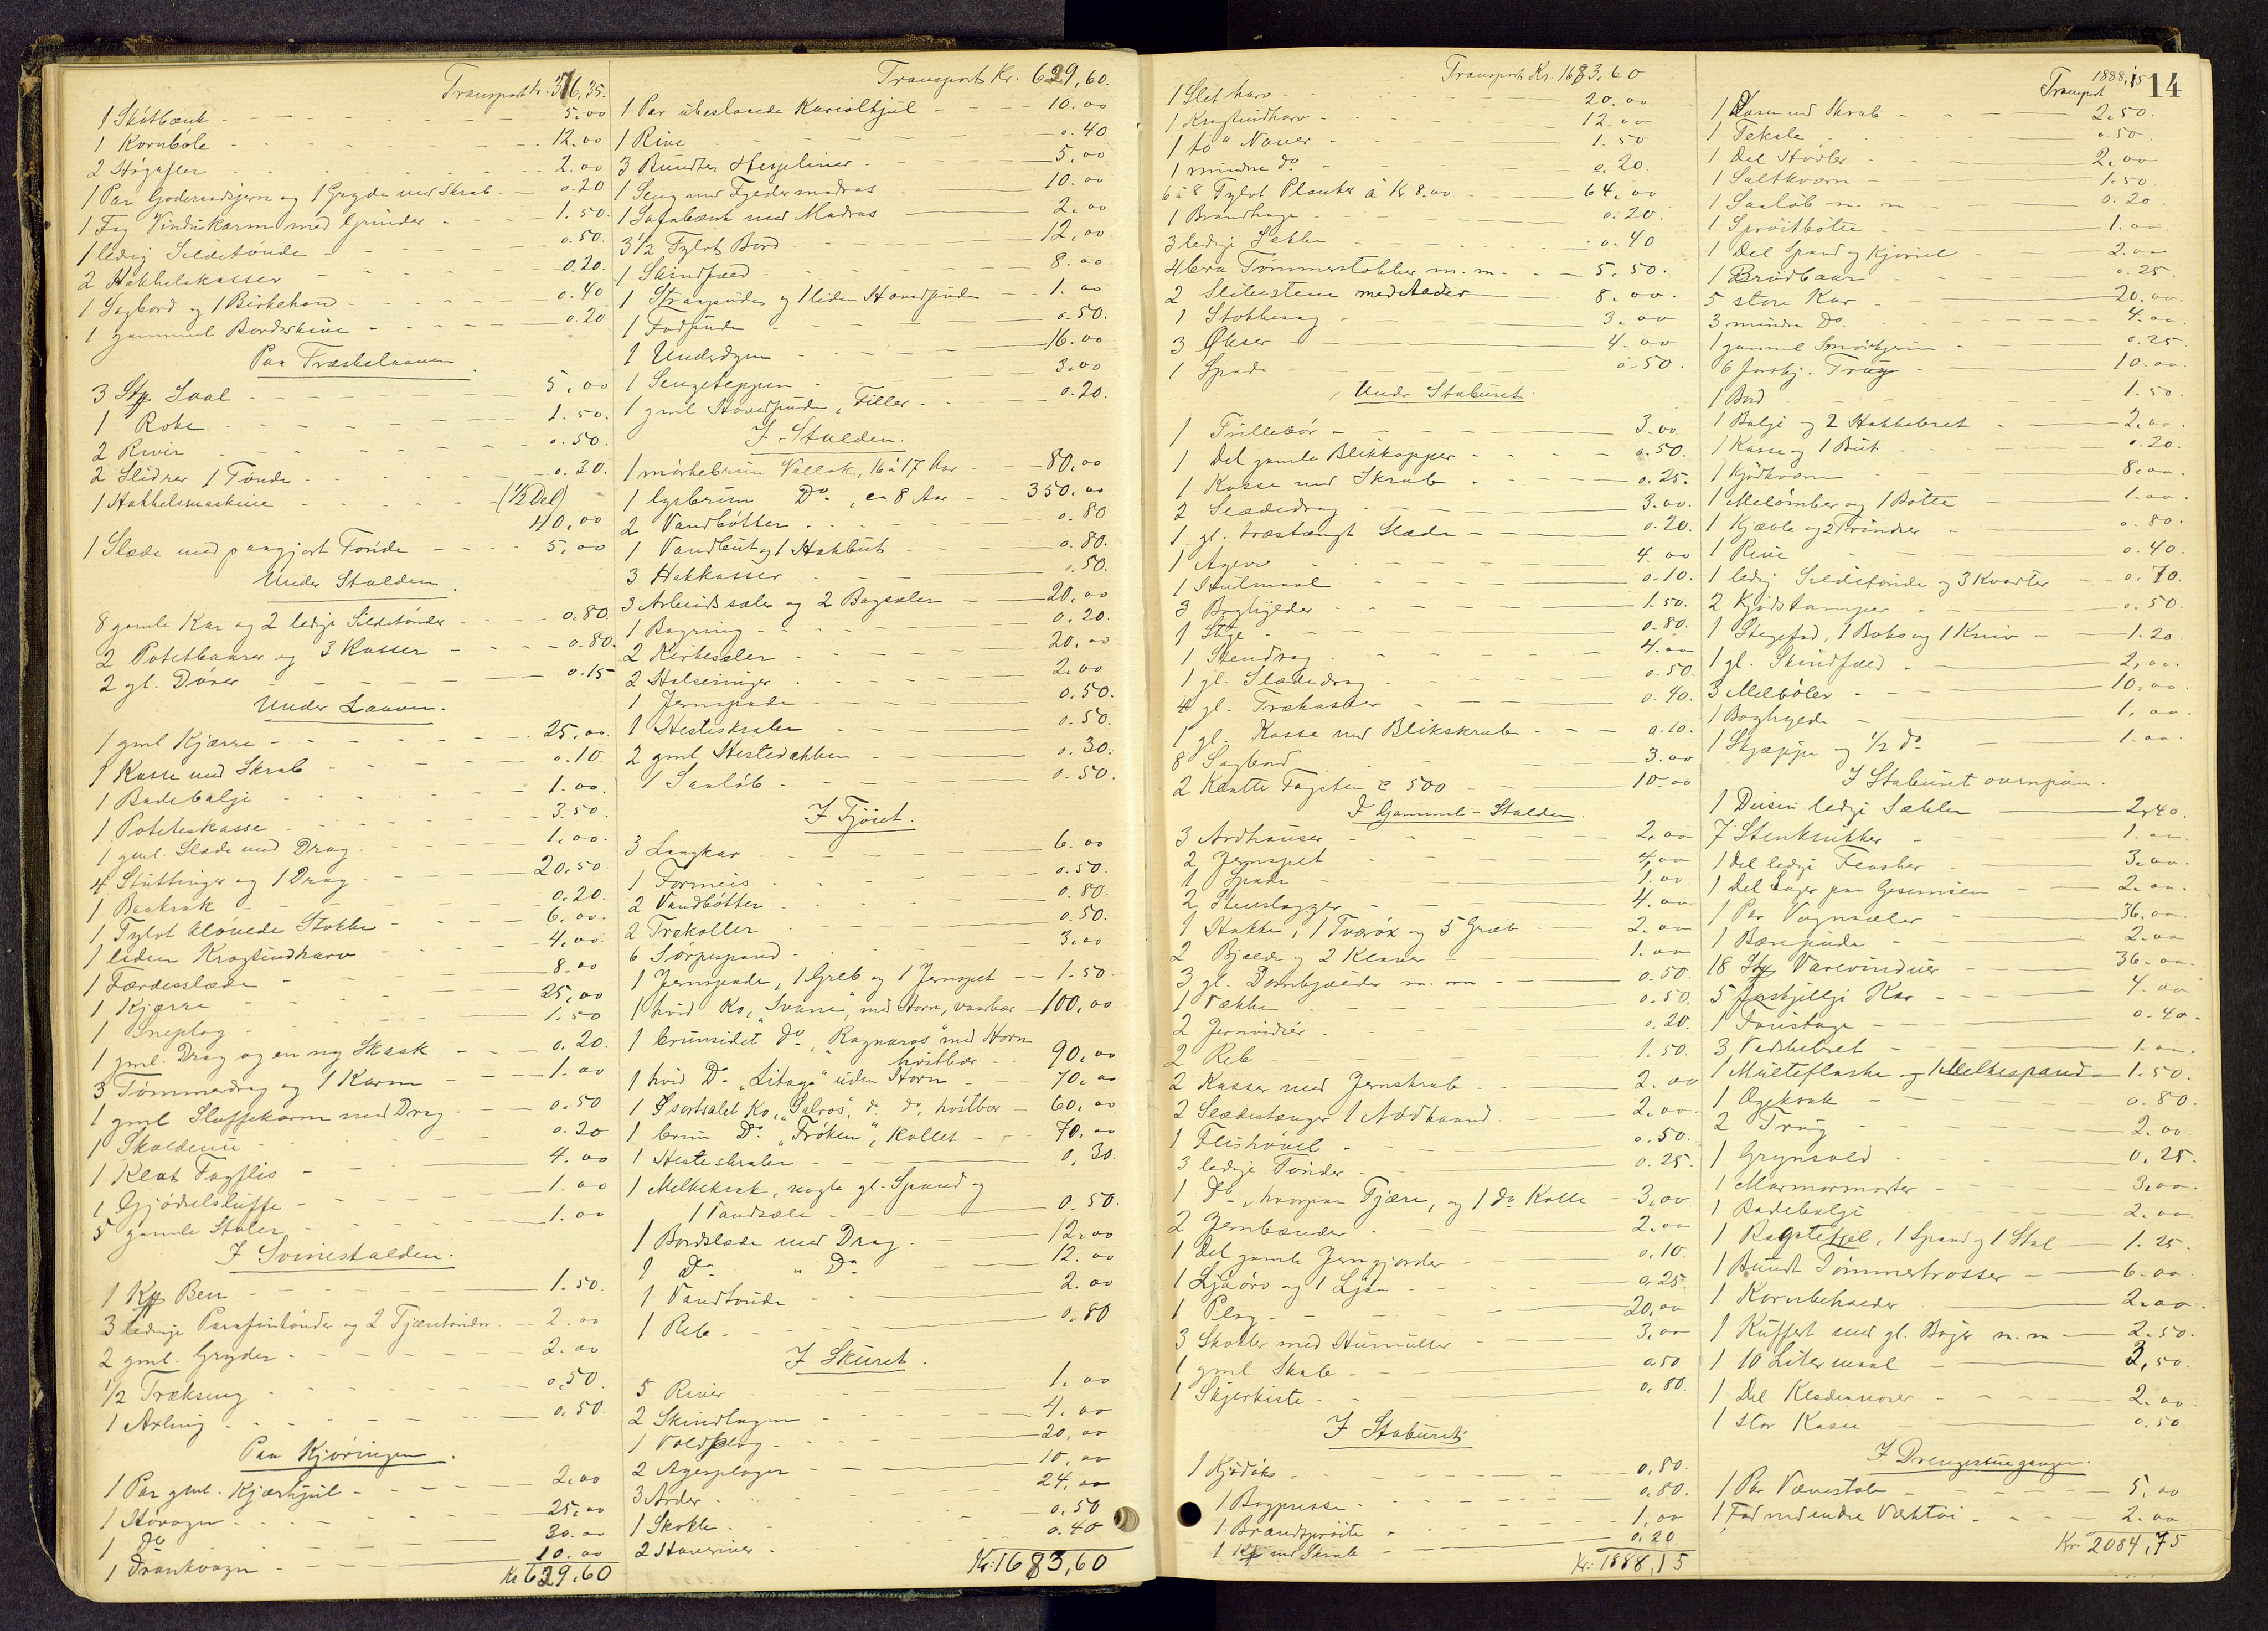 Transport Kr. 376,35.
1 Skötbænk - 5,00
1 Kornböle - 12.00
2 Högafler 2.00
1 Par Goderaadsjern og 1 Gryde med Skrab - 0.20
1 Fag Vindüskarm med Grinder - 1.50.
1 ledig Sildetönde - 0.50.
2 Hakkelskasser 0.20.
1 Sagbord og 1 Birkehan - 0.40
1 gammel Bordskive - 0.20
Paa Træskelaaven.
3 Stp Saal - 5,00
1 Roke 1.50.
2 River 0.50.
2 Slidrer 1 Tönde - 0.30.
1 Hakkelsmaskine (1/2 Del) 40,00
1 Slæde med paagjort Tönde - 5,00
Under Stalden.
8 gamle Kar og 2 ledige Sildetönder - 0.80.
2 Potetkaarer og 3 Kasser - 0.80.
2 gl. Dörer - 0.15
Under Laaven.
1 gml Kjærre - 25,00.
1 Kasse med Skrab - 0.10.
1 Badebalje - 1.00.
1 Poteteskasse - 3.50.
1 gml. Slæde med Drag. - 1,00.
4 Stüttinger og 1 Drag - 20,50.
1 Baakrak - 0.20.
1 Tylvt klövede Stokke - 6,00.
1 liden Krogtindharv - 4,00.
1 Færdesslæde - 8.00
1 Kjærre - 25,00
1 Sneplog - 1.50
1 gml. Drag og en ny Skaak - 0.20.
3 Tömmerdrag og 1 Karm - 1.00
1 gml Sluffekarm med Drag - 0.50
1 Skoldeuu - 0.20
1 Klat Tagflis - 4.00
1 Gjödselsluffe - 1.00
5 gamle Stoler - 1.00
I Svinestalden.
1 Kp Ben - 1.50.
3 ledige Parafintönder og 2 Tjæretönder - 2.00
2 gml. Gryder - 2.00
1/2 Trækseng - 0,50.
1 Axling - 0,50.
Paa Kjöringen.
1 Par gml. Kjærhjül - 2.00
1 Hövogn - 25,00
1 Do 30.00
1 Drankvogn - 10.00
Kr 629.60
Transport Kr. 629,60.
1 Par übeslaaede Kariolhjül - 10.00
1 Rive - 0.40
3 Bundter Hesjeliner - 5,00
1 Seng med Fjedermadras - 10.00
1 Sofabænk med Madras - 2,00
3 1/2 Tylvt Bord - 12,00
1 Skindfæld - 8.00
1 Straapüde og 1 liden Hovedpüde - 1.00
1 Fodpüde - 0.50.
1 Underdyne - 16.00
1 Sengeteppen - 3,00
1 gml Hovedpüde, Filler - 0.20.
I Stalden.
1 mörkebrün Vallak, 16 à 17 Aar - 80,00
1 lysbrün Do, ca 8 Aar - 350,00
2 Vandbötter - 0.80
1 Vandbüt og 1 Hakbüt - 0.80.
3 Hakkasser - 0.50.
3 Arbeidssæler og 2 Bagsæler - 20,00
1 Bagring - 0.20.
2 Kirkesæler - 20,00
2 Halsringer - 2.00
1 Jernspade - 0.50.
1 Hesteskraber - 0.50.
2 gml. Hestedækken - 0.30.
1 Saalöb - 0.50.
I Fjöset.
3 Langkar - 6.00
1 Formeis - 0.50.
2 Vandbötter - 0.80.
2 Trækoller 0.50.
6 Sörpespand - 3,00
1 Jernspade, 1 Greb og 1 Jernspet - 1.50.
1 hvid Ko, "Svane", med Horn, vaarbær 100,00
1 brünsidet Do "Ragnaros" med Horn höstbær - 90,00
1 hvid Do "Litago" uden Horn - 70,00
1 Sortsidet Ko, "Salros", do do, höstbær - 60,00
1 brün Do "Fröken", Kollet - 70,00
1 Hesteskraber - 0,30.
1 Melkekrak, nogle gl. Spand og
1 Vandsæle - 0.50.
1 Bordslæde med Drag - 12,00
1 Do " Do - 12.00
1 Vandtönde - 2.00
1 Reb - 0,80
I Sküret.
5 River 1.00
2 Skindlagen - 4.00
1 Voldplog - 20,00
2 Agerploger - 10,00
3 Arder - 24,00
1 Skokle - 0,50
2 Staurriver - 0.40
Kr. 1683,60
Transport Kr. 1683,60
1 Slet harv - 20.00
1 Krogtindharv - 12.00
1 to " Naver - 1.50
1 mindre do - 0.20
6 à 8 Tylvt Planker à Kr 8.00 - 64,00
1 Brandhage - 0.20.
3 ledige Sække - 0.40
4 bra Tömmerstokker m.m. - 5,50.
2 Slibestene med Aader - 8.00.
1 Stokkesag - 3.00
3 Økser - 4.00
1 Spade - 0.50.
Under Stabüret.
1 Trillebör - 3.00
1 Del gamle Blikkopper - 0.50.
1 Kasse med Skrab - 0.25.
2 Slædedrag - 3.00.
1 gl. træstangt Slæde - 0.20.
1 Agevv 4.00
1 Hülmaal 0.10.
3 Boghylder - 1.50.
1 Stige - 0.80.
1 Stendrag - 4.00
1 gl. Slædedrag - 0.50
4 gl. Trækasser - 0.40.
1 gl. Kasse med Blikskrab - 0.10.
8 Sagbord 3.00
2 Kantte Tagsten c 500 - 10.00
I Gammel-Stalden.
3 Ardhauser - 2,00
2 Jernspet 4,00
1 Spade - 1.00
2 Stenslagger - 4.00
1 Hakke, 1 Tverøx og 5 Græb - 2.00
2 Bjælde og 2 Klaver - 1.00
3 gl. Dombjælder m.m - 0.50
1 Vække - 0.50.
2 Jernvidier 0.20
2 Reb - 1.50.
2 Kasser med Jernskrab - 2.00
2 Slædestænger 1 Nødbaand. 2,00
1 Flishövel - 0.50.
3 ledige Tönder - 0.25.
1 Do, hvorpaa Tjære, og 1 do Kalk - 3,00
2 Jernbænder - 2.00
1 Del gamle Jerngjorder - 0,10.
1 Ljaaörv og 1 Ljaa - 0,25.
1 Plog - 20,00
3 Skokler med Hümüller - 3,00
1 gml Skab - 0.50
1 Skjerkiste - 0,80.
I Stabüret
1 Kjödöks - 0,80.
1 Bogpresse - 0.80.
1 Brandspröite - 1,00
1 Kp med Skrab - 0,20
Kr. 1888,15
14
Transport 1888,15
1 Karm med Skrab - 2,50.
1 Teksle 0.50.
1 Del Hövler - 2,00
1 Saltkværn - 1.50.
1 Saalöb m. m - 0.20.
1 Spröitbötte - 1.00.
1 Del Spand og Kjörrel - 2.00
1 Brödkaar - 0.25.
5 store Kar - 20.00.
3 mindre Do. 4.00.
1 gammel 0.25
6 forskj. Trüg - 10.00.
1 Bord 1.50.
1 Balje og 2 Hakkebret - 2.00.
1 Kasse og 1 Büt - 0.20.
1 Kjödkværn - 8.00.
1 Melömber og 1 Bötte - 1.00.
1 Kjævle og 2 Trinser - 0.80.
1 Rive - 0.40.
1 ledig Sildetönde og 3 Kvarter - 0.70.
2 Kjödstamper - 0.50.
1 Stegefad, 1 Boks og 1 Kniv - 1.20
1 gl. Skindfæld - 2,00.
3 Melböler - 10,00.
1 Boghylde - 1,00.
1 Skjæppe og 1/2 do 1.00.
I Stabüret ovenpaa.
1 Dusin ledige Sække - 2,40.
7 Stenkrukker - 1.00.
1 Del ledige Flasker - 3.00.
1 Del Lager paa Gesimsen - 2.00.
1 Par Vognsæler - 36,00.
1 Bærepüde - 2.00
18 Stp Varevindüer - 36.00.
5 forskjellige Kar - 4.00
1 Foustage - 0.40.
3 Vadskebret - 1.00.
1 Multeflaske og 1 Melkespand - 1.50.
1 Øgekrak - 0.80.
2 Trüg - 2.00
1 Grynsold - 0.25.
1 Marmormorter - 3,00.
1 Badebalje - 2.00.
1 Bagstefjel, 1 Spand og 1 Stol - 1.25.
1 Bundt Tömmertrosser - 6.00
1 Kornbeholder - 2.00.
1 Küffert med gl. Böger m. m - 2.50.
1 10 Liter maal - 3,50.
1 Del Kladeuover - 2.00
1 stor Kasse 0,50
I Drengestuegangen.
1 Par Vævestole - 5,00
1 Fad med endre Værktöi - 2.00
Kr. 2084,75